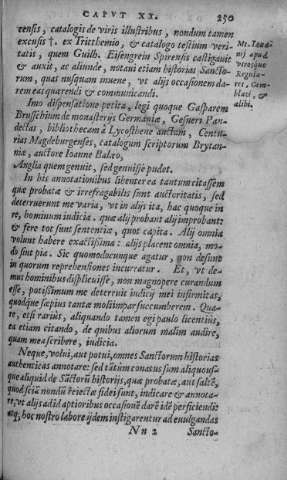 CAPVT XX. 250
censis, catalogis de viris illustribus, nondum tamen
excusis †. ex Trithemio, & catalogo testium veri-
tatis, quem Guilh. Eisengrein Spirensis castigauit
& auxit, ac aliunde, notaui etiam historias Sancto-
rum, quas nusquam inuene, vt alijs occasionem da-
rem eas quærendi & communicandi.
Imo dispensatione petita, legi quoque Gasparem
Bruschium de monasterijs Germaniæ, Gesneri Pan-
dectas, bibliothecam à Lycosthene auctam, Centu-
rias Magdeburgenses, catalogum scriptorum Brytan-
niæ, auctore Ioanne Balæo,
Anglia quem genuit, sed genuisse pudet.
In his annotationibus libenter ea tantum citassem
quæ probatæ & irrefragabilis sunt auctoritatis, sed
deterruerunt me varia, vt in alijs ita, hac quoque in
re, hominum iudicia. quæ alij probant alij improbant:
& fere tot sunt sententiæ, quot capita. Alij omnia
volunt habere exactissima: alijs placent omnia, mo-
do sunt pia. Sic quomodocunque agatur, non desunt
in quorum reprehensiones incurratur. Et, vt de-
mus hominibus displicuisse, non magnopere curandum
esse, potissimum me deterruit iudicij mei infirmitas,
quodque sæpius tantæ molis impar succumberem. Qua-
re, etsi rarius, aliquando tamen egi paulo licentius,
ea etiam citando, de quibus aliorum malim audire,
quam me ascribere, iudicia.
Neque, volui, aut potui, omnes Sanctorum historias
authenticas annotare: sed tātùm conatus sum aliquous-
que aliquid de Sāctorū historijs, quæ probatæ, aut saltē,
quòd sciā nondū reiectæ fidei sunt, indicare & annota-
re, vt alijs ad id aptioribus occasionē darē idē perficiendi:
atq, hoc nostro labore ijdem instigarentur ad euulgandas
Nn 2 Sancto-
Mf. Toua-
nij apud
viresque
Regula-
res, Gem-
blaci, &
alibi.